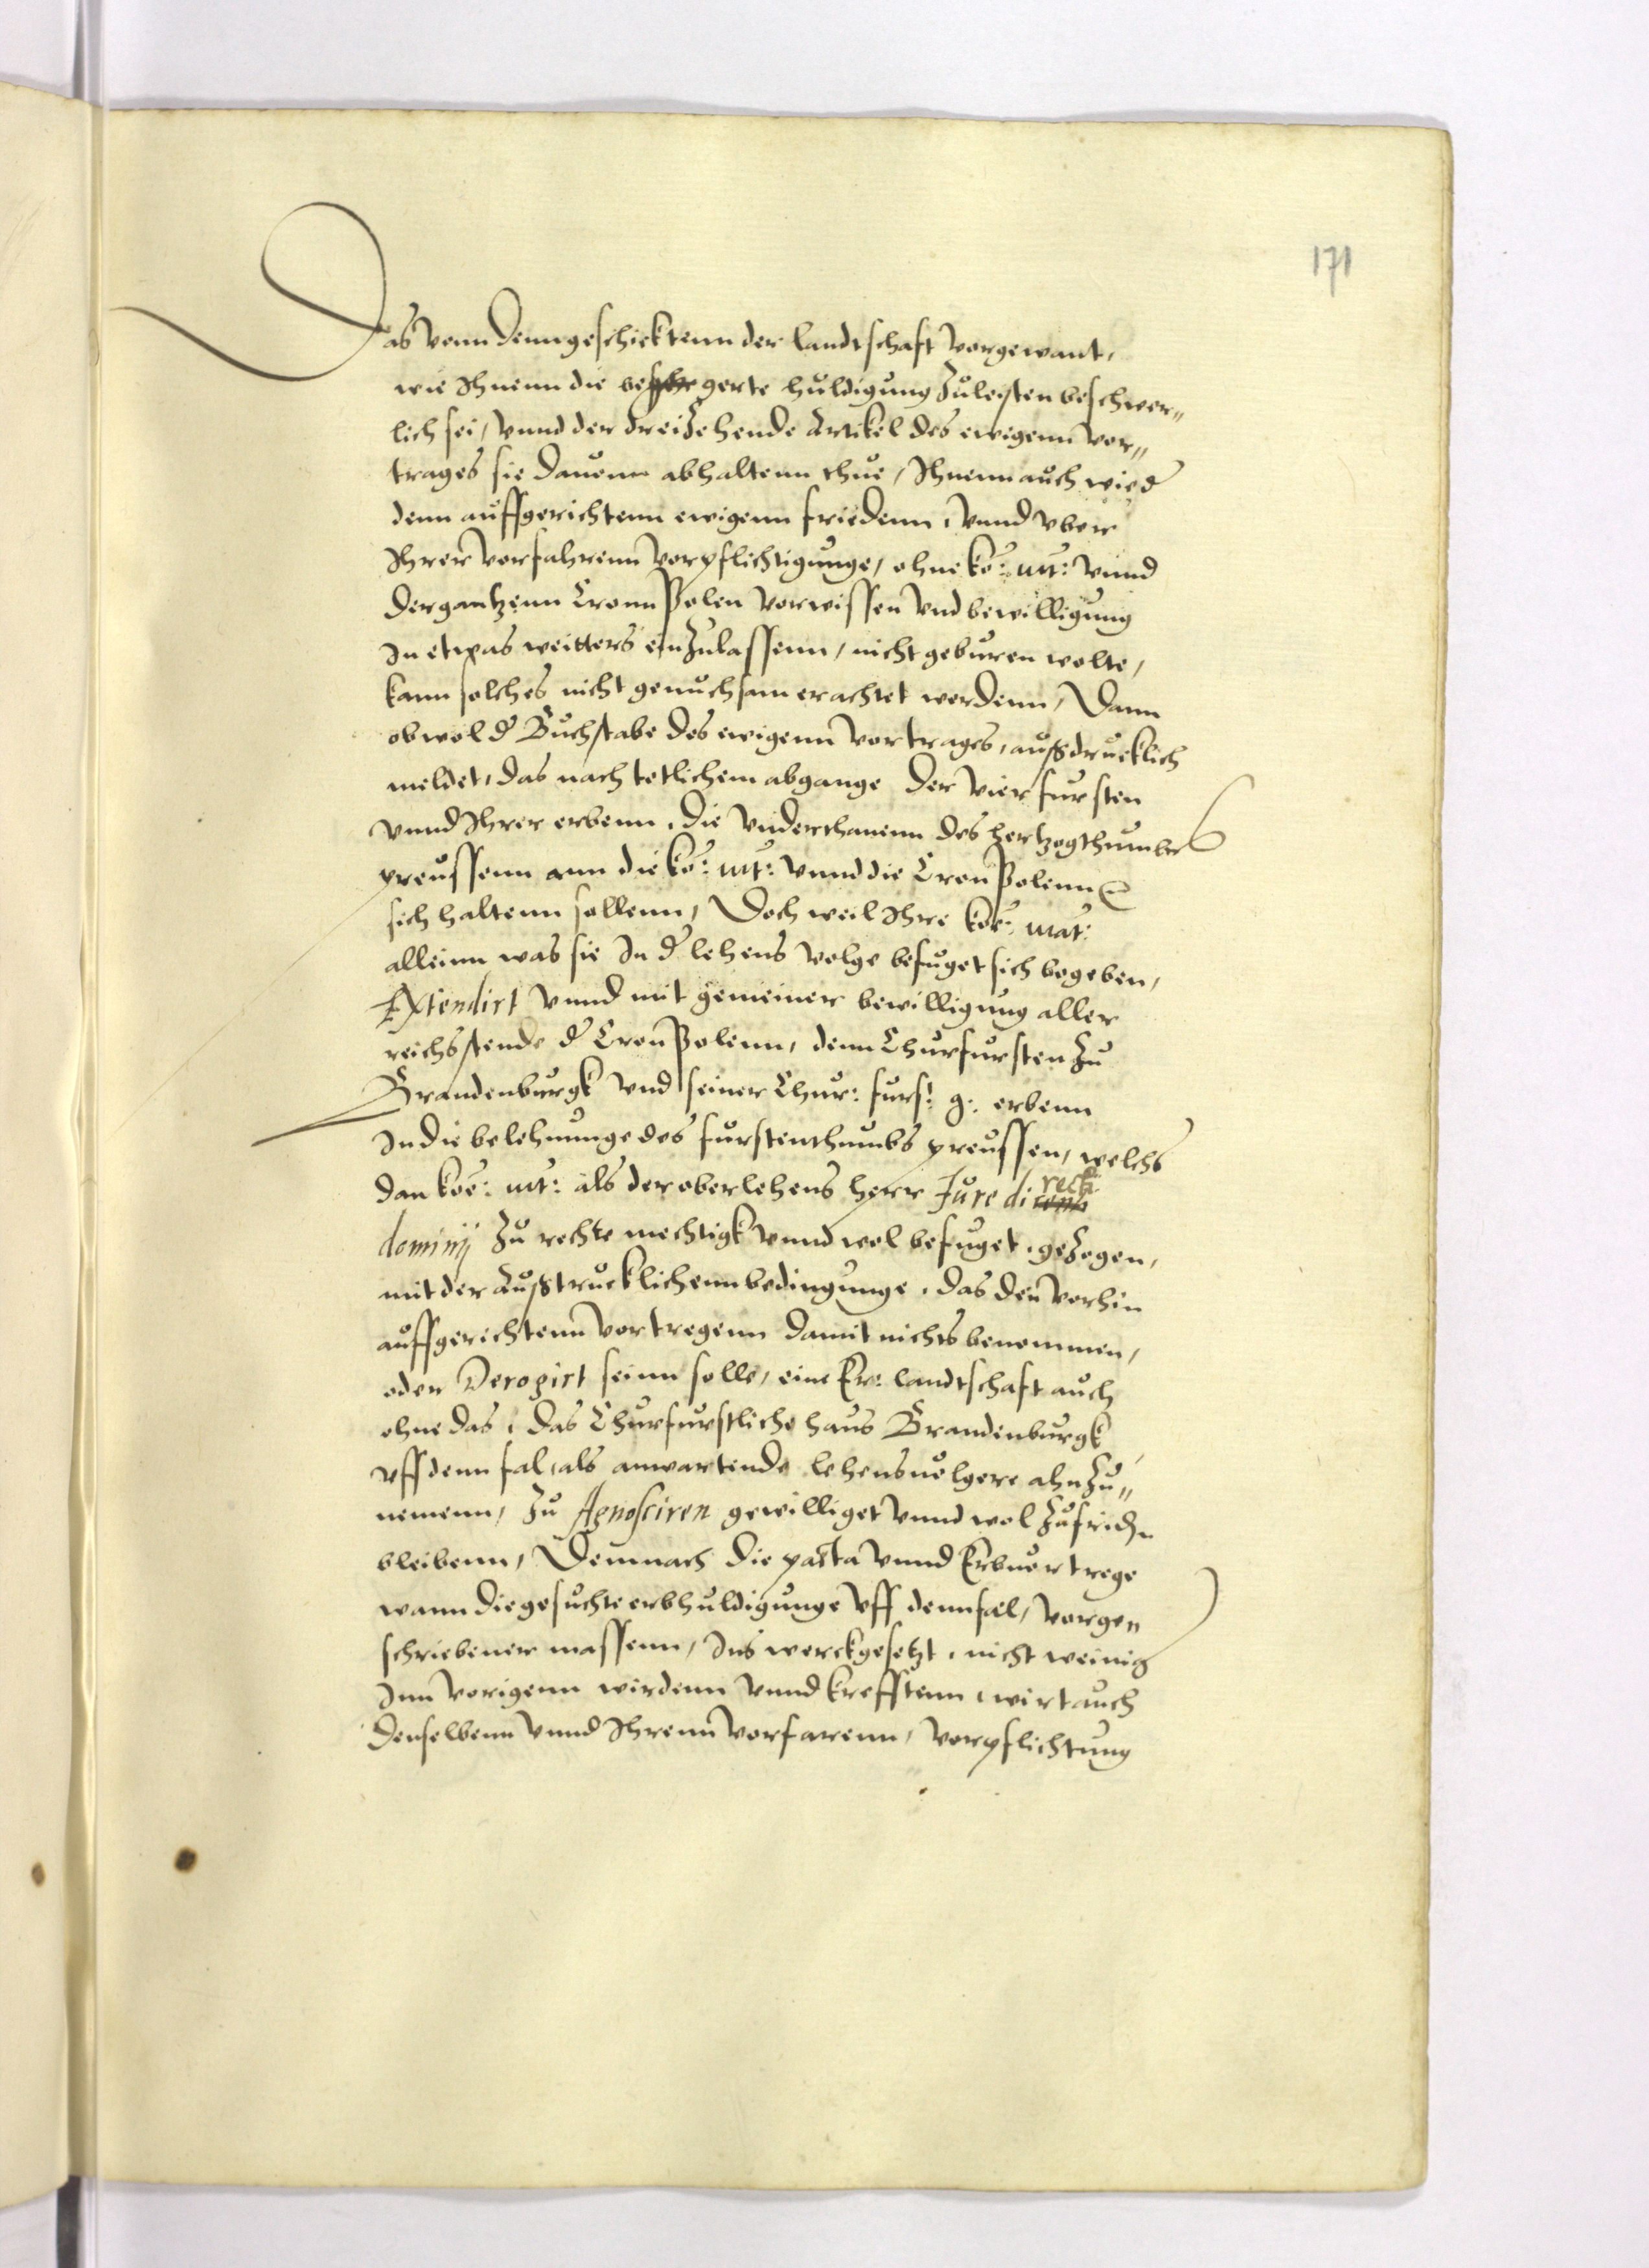 171
Das vonn denn geschicktenn der landtschaft vorgewant,
wie Ihnenn die begerte huldigung zuleisten beschwer„
lich sei, vnnd der dreizehende Artikel des ewigenn vor„
trages sie dauonn abhaltenn thue, Ihnenn auch wied
denn auffgerichtenn ewigenn friedenn, vnnd vber
Ihrer vorfahrenn vorpflichtigunge, ohne ko: mt: vnnd
der gantzenn Cronn Polen vorwissen vnd bewilligung
In etwas weitters einzulassenn, nicht geburen wolte,
kann solches nicht genuchsam erachtet werdenn, Dann
obwol d Buchstabe des ewigenn vortrages, außdrucklich
meldet, das nach totlichem abgange der vier fursten
vnnd Ihrer erbenn, die vnderthanenn des hertzogthumbs
preussenn ann die ko: mt: vnnd die Cron Polenn
sich haltenn sollenn, Doch weil Ihre koe: mat:
alleinn was sie In d lehens volge befuget sich begeben,
Extendirt vnnd mit gemeiner bewilligung aller
reichsstende d Cron Polenn, denn Churfursten zu
Brandenburgk vnd seiner Chur: furs: g: erbenn
In die belehnunge des furstenthumbs preussen, welchs
dan koe: mt: als der oberlehens herr Jure directi
dominij zu rechte mechtigk vnnd wol befuget, gezogen,
mit der außtrucklichenn bedingunge, das den vorhin
auffgerichtenn vortregenn damit nichts benommen,
oder Derogirt seinn solle, eine Er: landtschaft auch
ohne das, das Churfurstliche haus Brandenburgk
vff denn fal, als anwartende lehensuolgere ahnzu„
nemenn, zu Agnosciren gewilliget vnnd wol zufriden
bleibenn, Demnach die pacta vnnd Erbuortrege
wann die gesuchte erbhuldigunge vff denn fal, vorge„
schriebener massenn, Ins werck gesetzt, nicht weinig
Inn vorigenn wirdenn vnnd krefftenn, wirt auch
denselbenn vnnd Ihrenn vorfarenn, vorpflichtung